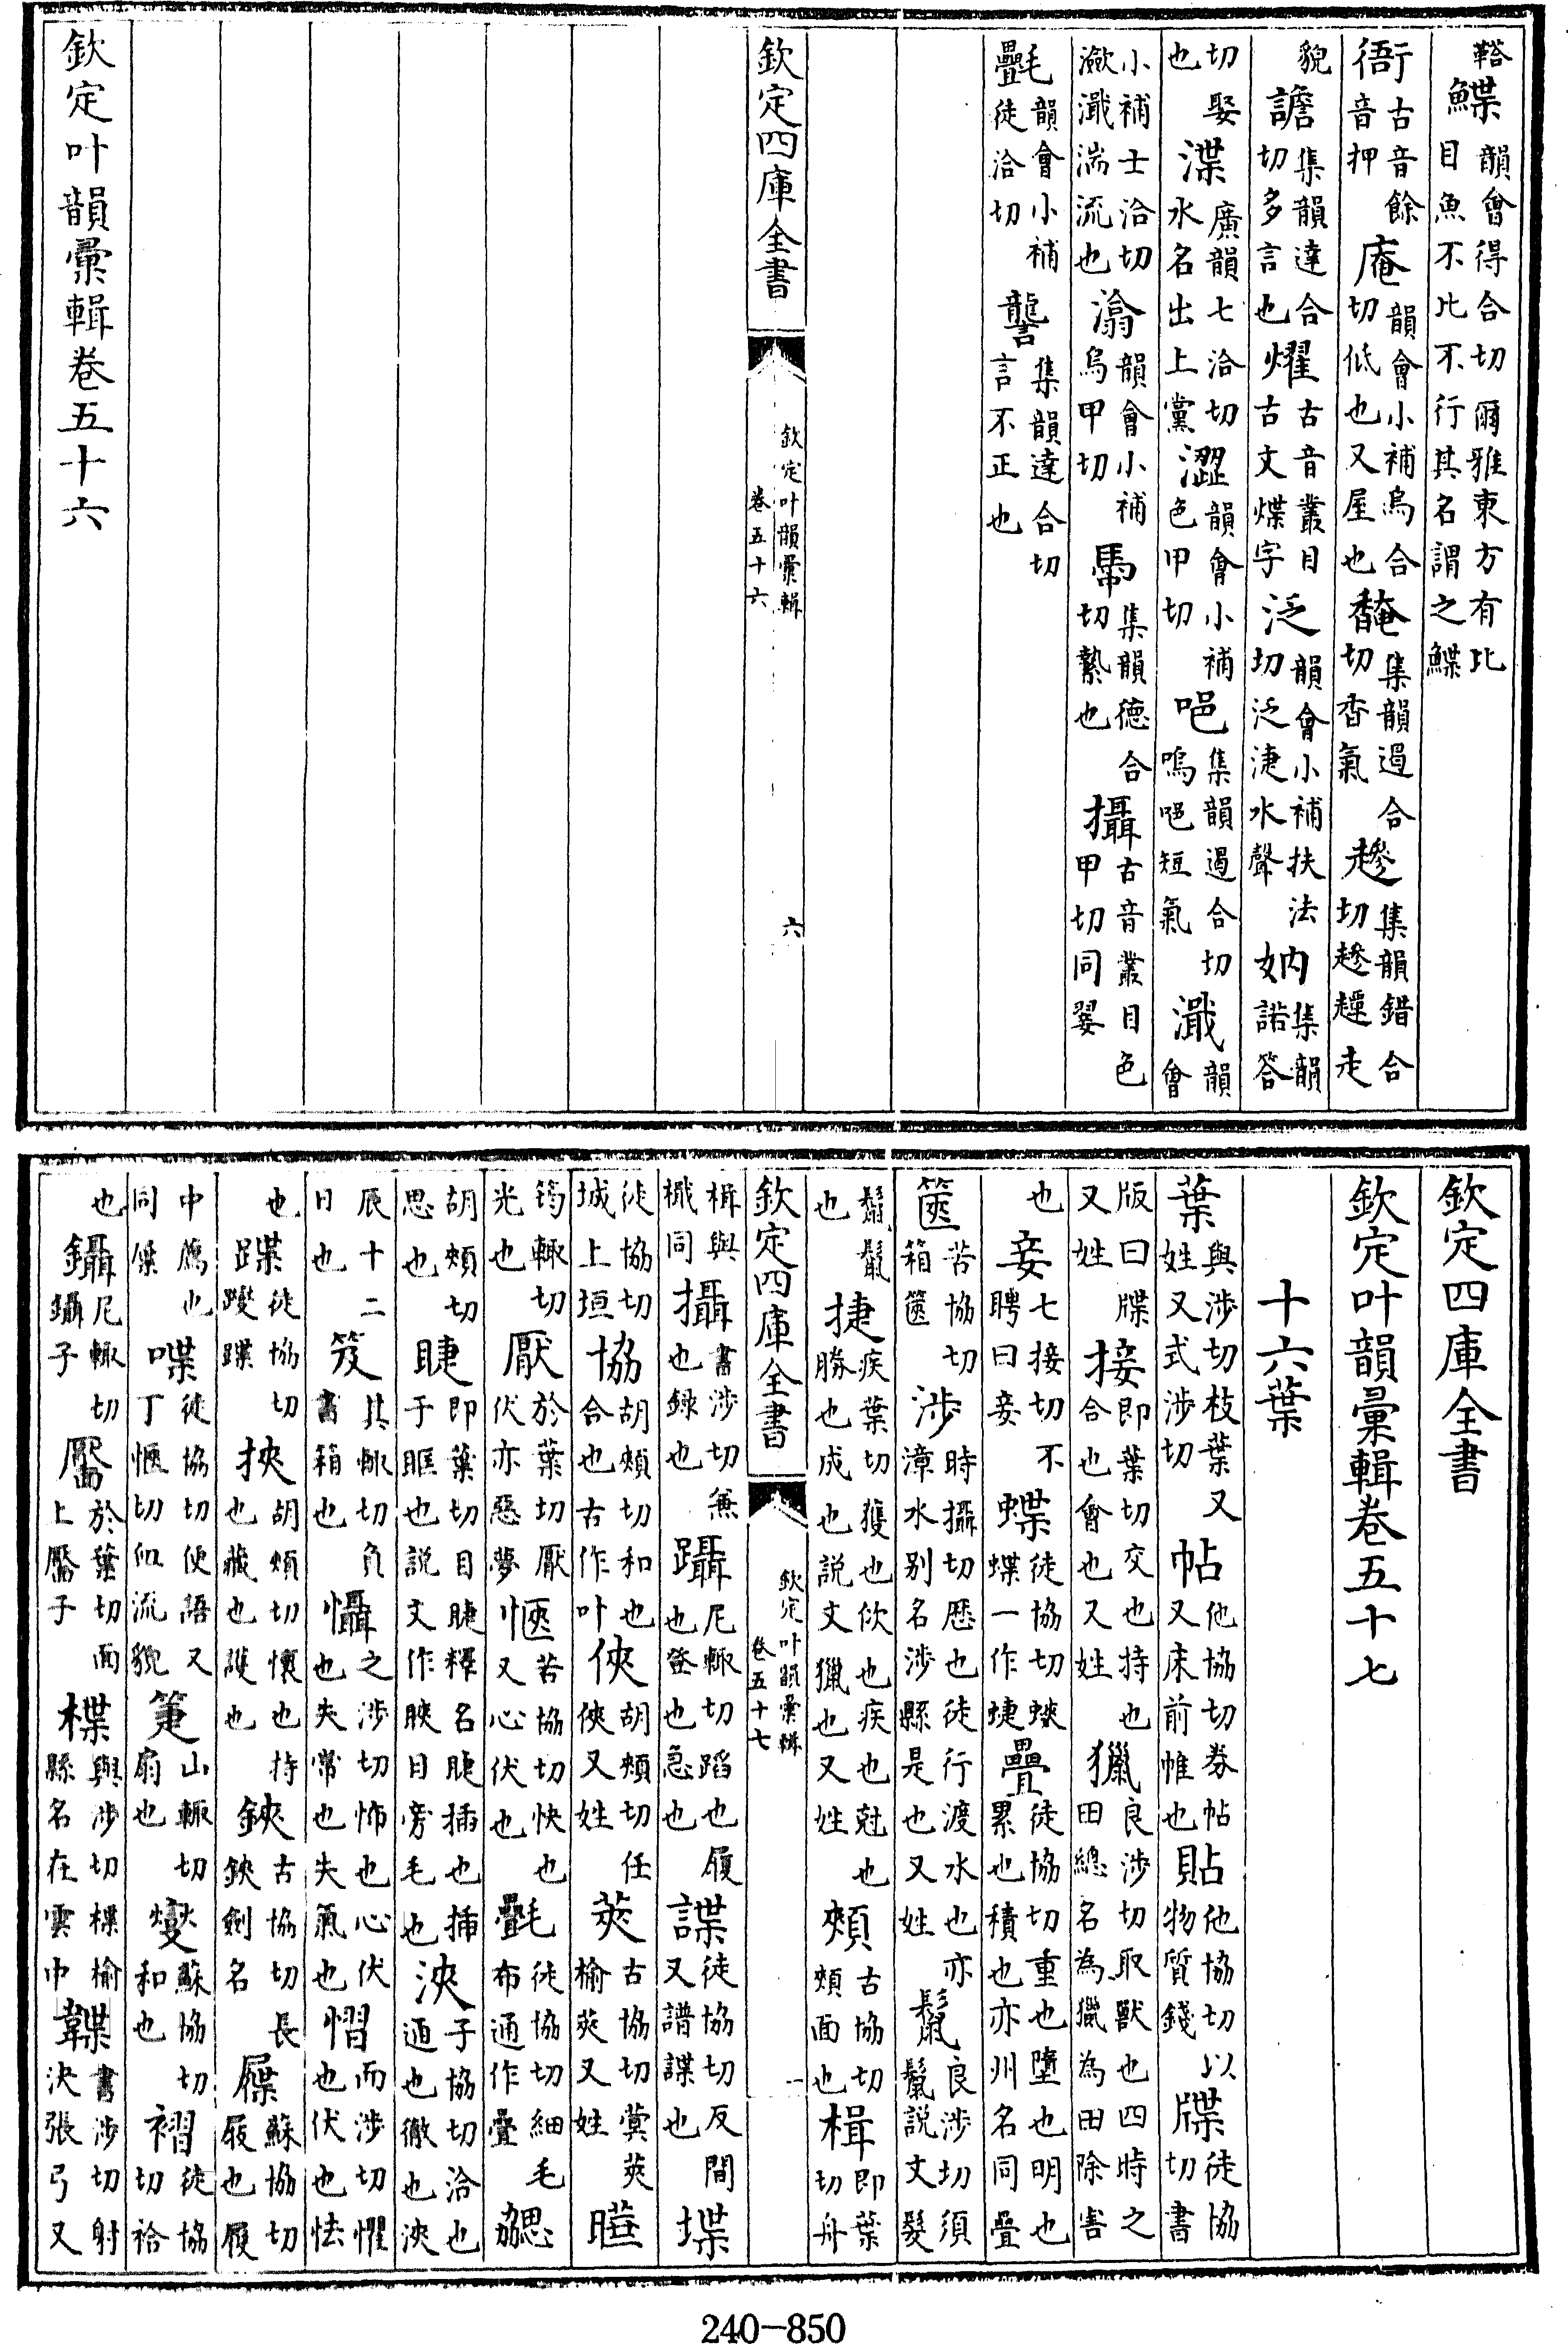 鞳鰈韻會得合切爾雅東方有比目魚不比不行其名謂之鰈
衙古音餘音押庵韻會小補烏合切低也又屋也馣集韻遏合切香氣趁集韻錯合切趁趯走
貌譫集韻達合切多言也燿古音叢目古文煠字泛韻會小補扶法切泛浹水聲妠集韻諾答
切娶也渫廣韻七洽切水名出上黨澀韻會小補色甲切唈集韻遏合切嗚唈短氣濈韻會
小補士洽切瀲濈湍流也潝韻會小補烏甲切集韻德合切縶也攝古音叢目色甲切同翣
氎韻會小補徒洽切讋集韻達合切言不正也
欽定四庫全書
欽定叶韻彚輯
卷五十六
六
欽定叶韻彚輯卷五十六
欽定四庫全書
欽定叶韻彚輯卷五十七
十六葉
葉與涉切枝葉又姓又式涉切帖他協切券帖又床前帷也貼他協切以物質錢牒徒協切書
版曰牒又姓接即葉切交也持也合也會也又姓獵良涉切取獸也四時之田總名為獵為田除害
也妾七接切不聘曰妾蝶徒協切蛺蝶一作蜨疊徒協切重也墮也明也累也積也亦州名同疊
篋苦協切箱篋涉時攝切歷也徒行渡水也亦漳水别名涉縣是也又姓鬣良涉切須鬣說文髮
鬣鬣也捷疾葉切獲也佽也疾也尅也勝也成也説文獵也又姓頰古協切頰面也楫即葉切舟
欽定四庫全書
欽定叶韻彚輯
卷五十七
一
楫與檝同攝書涉切兼也録也躡尼輒切蹈也履也登也急也諜徒協切反間又譜諜也堞
徒協切城上垣協胡頰切和也合也古作叶俠胡頰切任俠又姓莢古協切蓂莢榆莢又姓曄
筠輒切光也厭於葉切厭伏亦惡夢愜苦協切快也又心伏也氎徒協切細毛布通作疊勰
胡頰切思也睫即葉切目睫釋名睫插也插于眶也説文作䀹目旁毛也浹子協切洽也通也徹也浹
辰十二日也笈其輒切負書箱也懾之涉切怖也心伏也失常也失氣也慴而涉切懼也伏也怯
也蹀徒協切躞蹀挾胡頰切懷也持也藏也護也鋏古協切長鋏劍名屧蘇協切屐也履
中薦也同屟喋徒協切便語又丁愜切血流貌箑山輒切扇也燮蘇協切和也褶徒協切袷
也鑷尼輒切鑷子靨於葉切面上靨子楪與涉切楪榆縣名在雲中韘書涉切射決張弓又
240-850